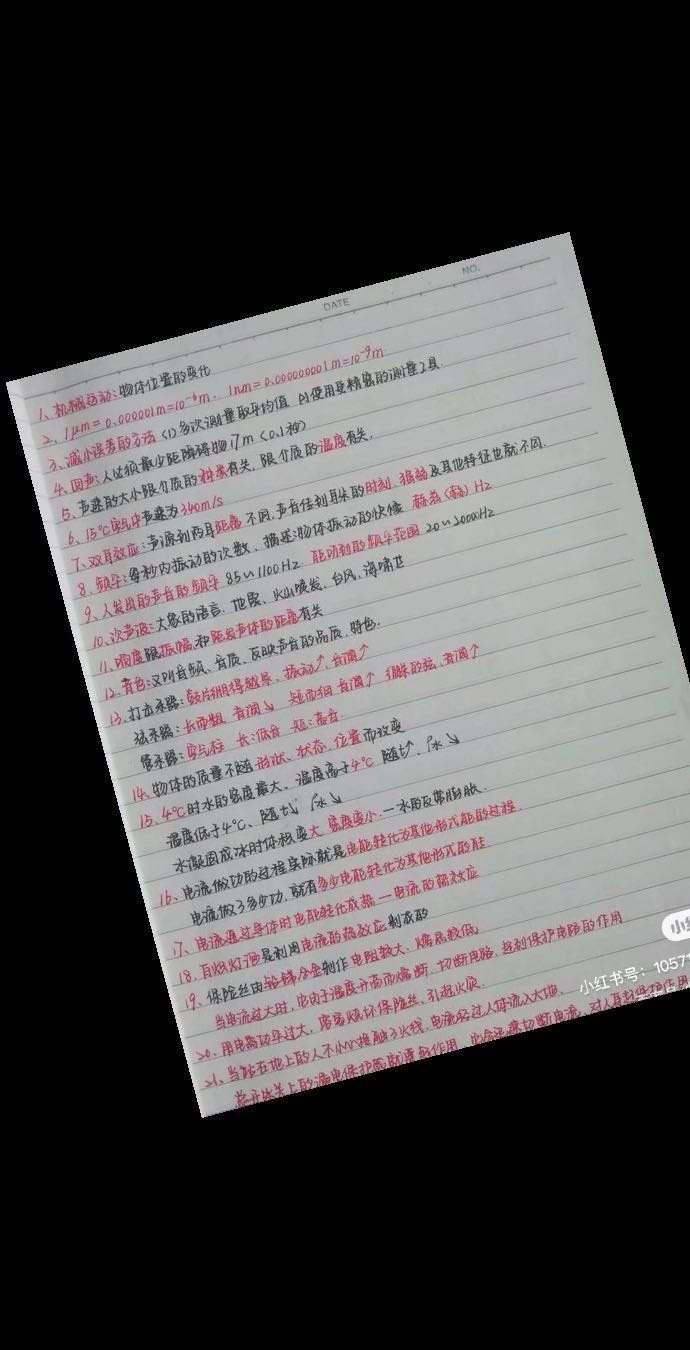 DATE
NO.
1、机械运动:物体位置的变化
2、1μm=0.000001m=10⁻⁶m. 1nm=0.000000001m=10⁻⁹m
3、减小误差的方法 (1)多次测量取平均值 (2)使用更精密的测量工具.
4、回声:人必须最少距障碍物17m (0.1秒)
5、声速的大小跟介质的种类有关、跟介质的温度有关.
6、15℃空气中声速为340m/s
7、双耳效应:声源到两耳距离不同,声音传到耳朵的时刻、强弱及其他特征也就不同.
8、频率:每秒内振动的次数、描述物体振动的快慢 赫兹(赫) Hz
9、人发出的声音的频率 85~1100Hz 能听到的频率范围 20~20000Hz
10、次声波:大象的语言、地震、火山喷发、台风、海啸
11、响度跟振幅和距发声体的距离有关
12、音色:又叫音频、音质、反映声音的品质、特色.
13、打击乐器:鼓片绷得越紧、振动↑,音调↑
弦乐器:长而粗 音调↘ 短而细 音调↑ 绷紧的弦,音调↑
管乐器:空气柱 长:低音 短:高音.
14、物体的质量不随形状、状态、位置而改变
15、4℃时水的密度最大、温度高于4℃ 随t↑、ρ水↘
温度低于4℃、随t↓ ρ水↘
水凝固成冰时体积变大 密度变小.—水的反常膨胀.
16、电流做功的过程实际就是电能转化为其他形式能的过程.
电流做了多少功,就有多少电能转化为其他形式的能
17、电流通过导体时电能转化成热—电流的热效应
18、白炽灯泡是利用电流的热效应制成的
19、保险丝由铅锑合金制作 电阻较大、熔点较低
当电流过大时,它由于温度升高而熔断、切断电路,起到保护电路的作用
20、用电器功率过大,容易烧坏保险丝、引起火灾.
21、当站在地上的人不小心接触了火线,电流经过人体流入大地,
总开关上的漏电保护器就要起作用,它会迅速切断电流,对人身起保护作用
小红书号:10571